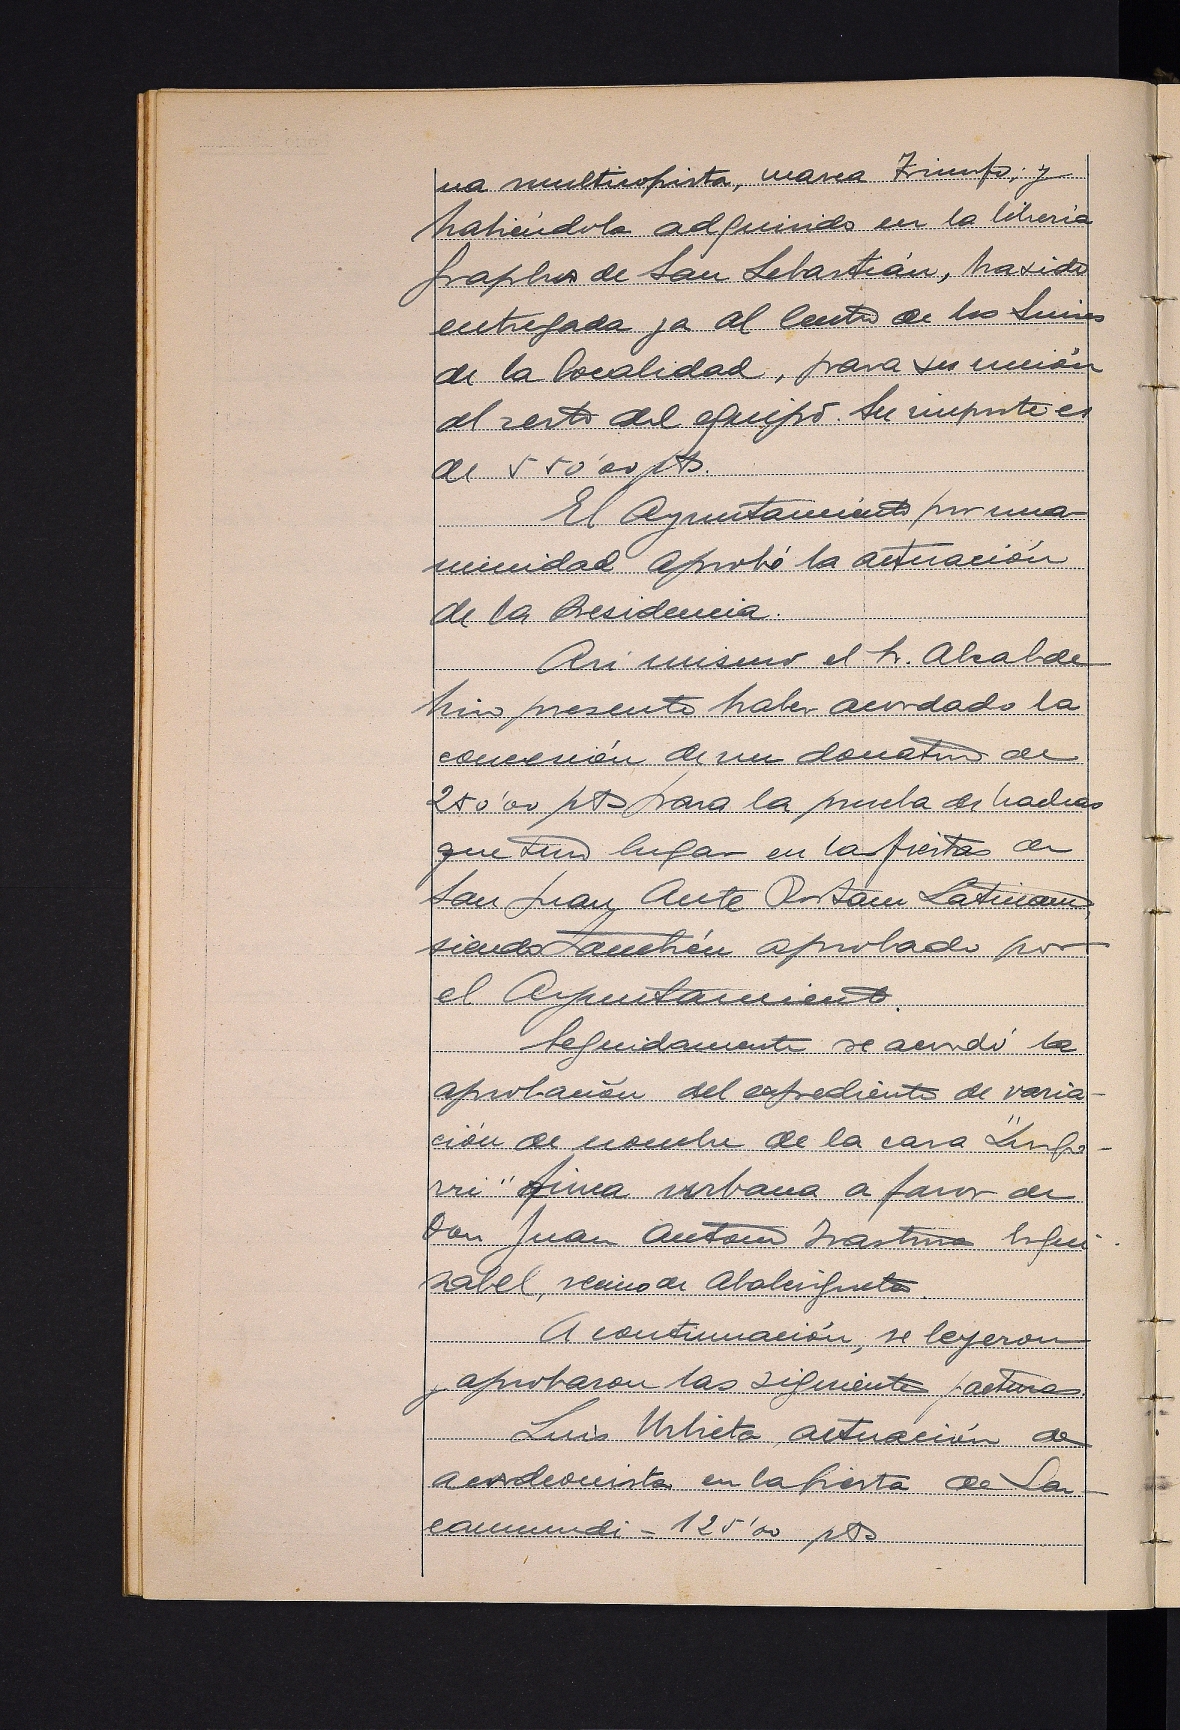 na multicopista, marca Triunfo; y
habiéndola adquirido en la librería
Graphos de San Sebastián, ha sido
entregada ya al Centro de los
de la localidad, para su unión
al resto del equipo. Su importe es
de 550'00 pts.
El Ayuntamiento por una-
nimidad aprobó la actuación
de la Presidencia.
Asi mismo el Sr. Alcalde
hizo presente haber acordado la
concesión de un donativo de
250'00 pts para la prueba de hachas
que tuvo lugar en la fiestas de
San Juan Ante Portam Latinam,
siendo también aprobado por
el Ayuntamiento.
Seguidamente se acordó la
aprobación del expediente de varia-
ción de nombre de la casa
rri" finca urbana a favor de
Don Juan Antonio
zabel, vecino de Abalcisqueta.
A continuación, se leyeron
y aprobaron las siguientes facturas
Luis Urbieta actuación de
acordeonista en la fiesta de La-
camundi - 125'00 pts